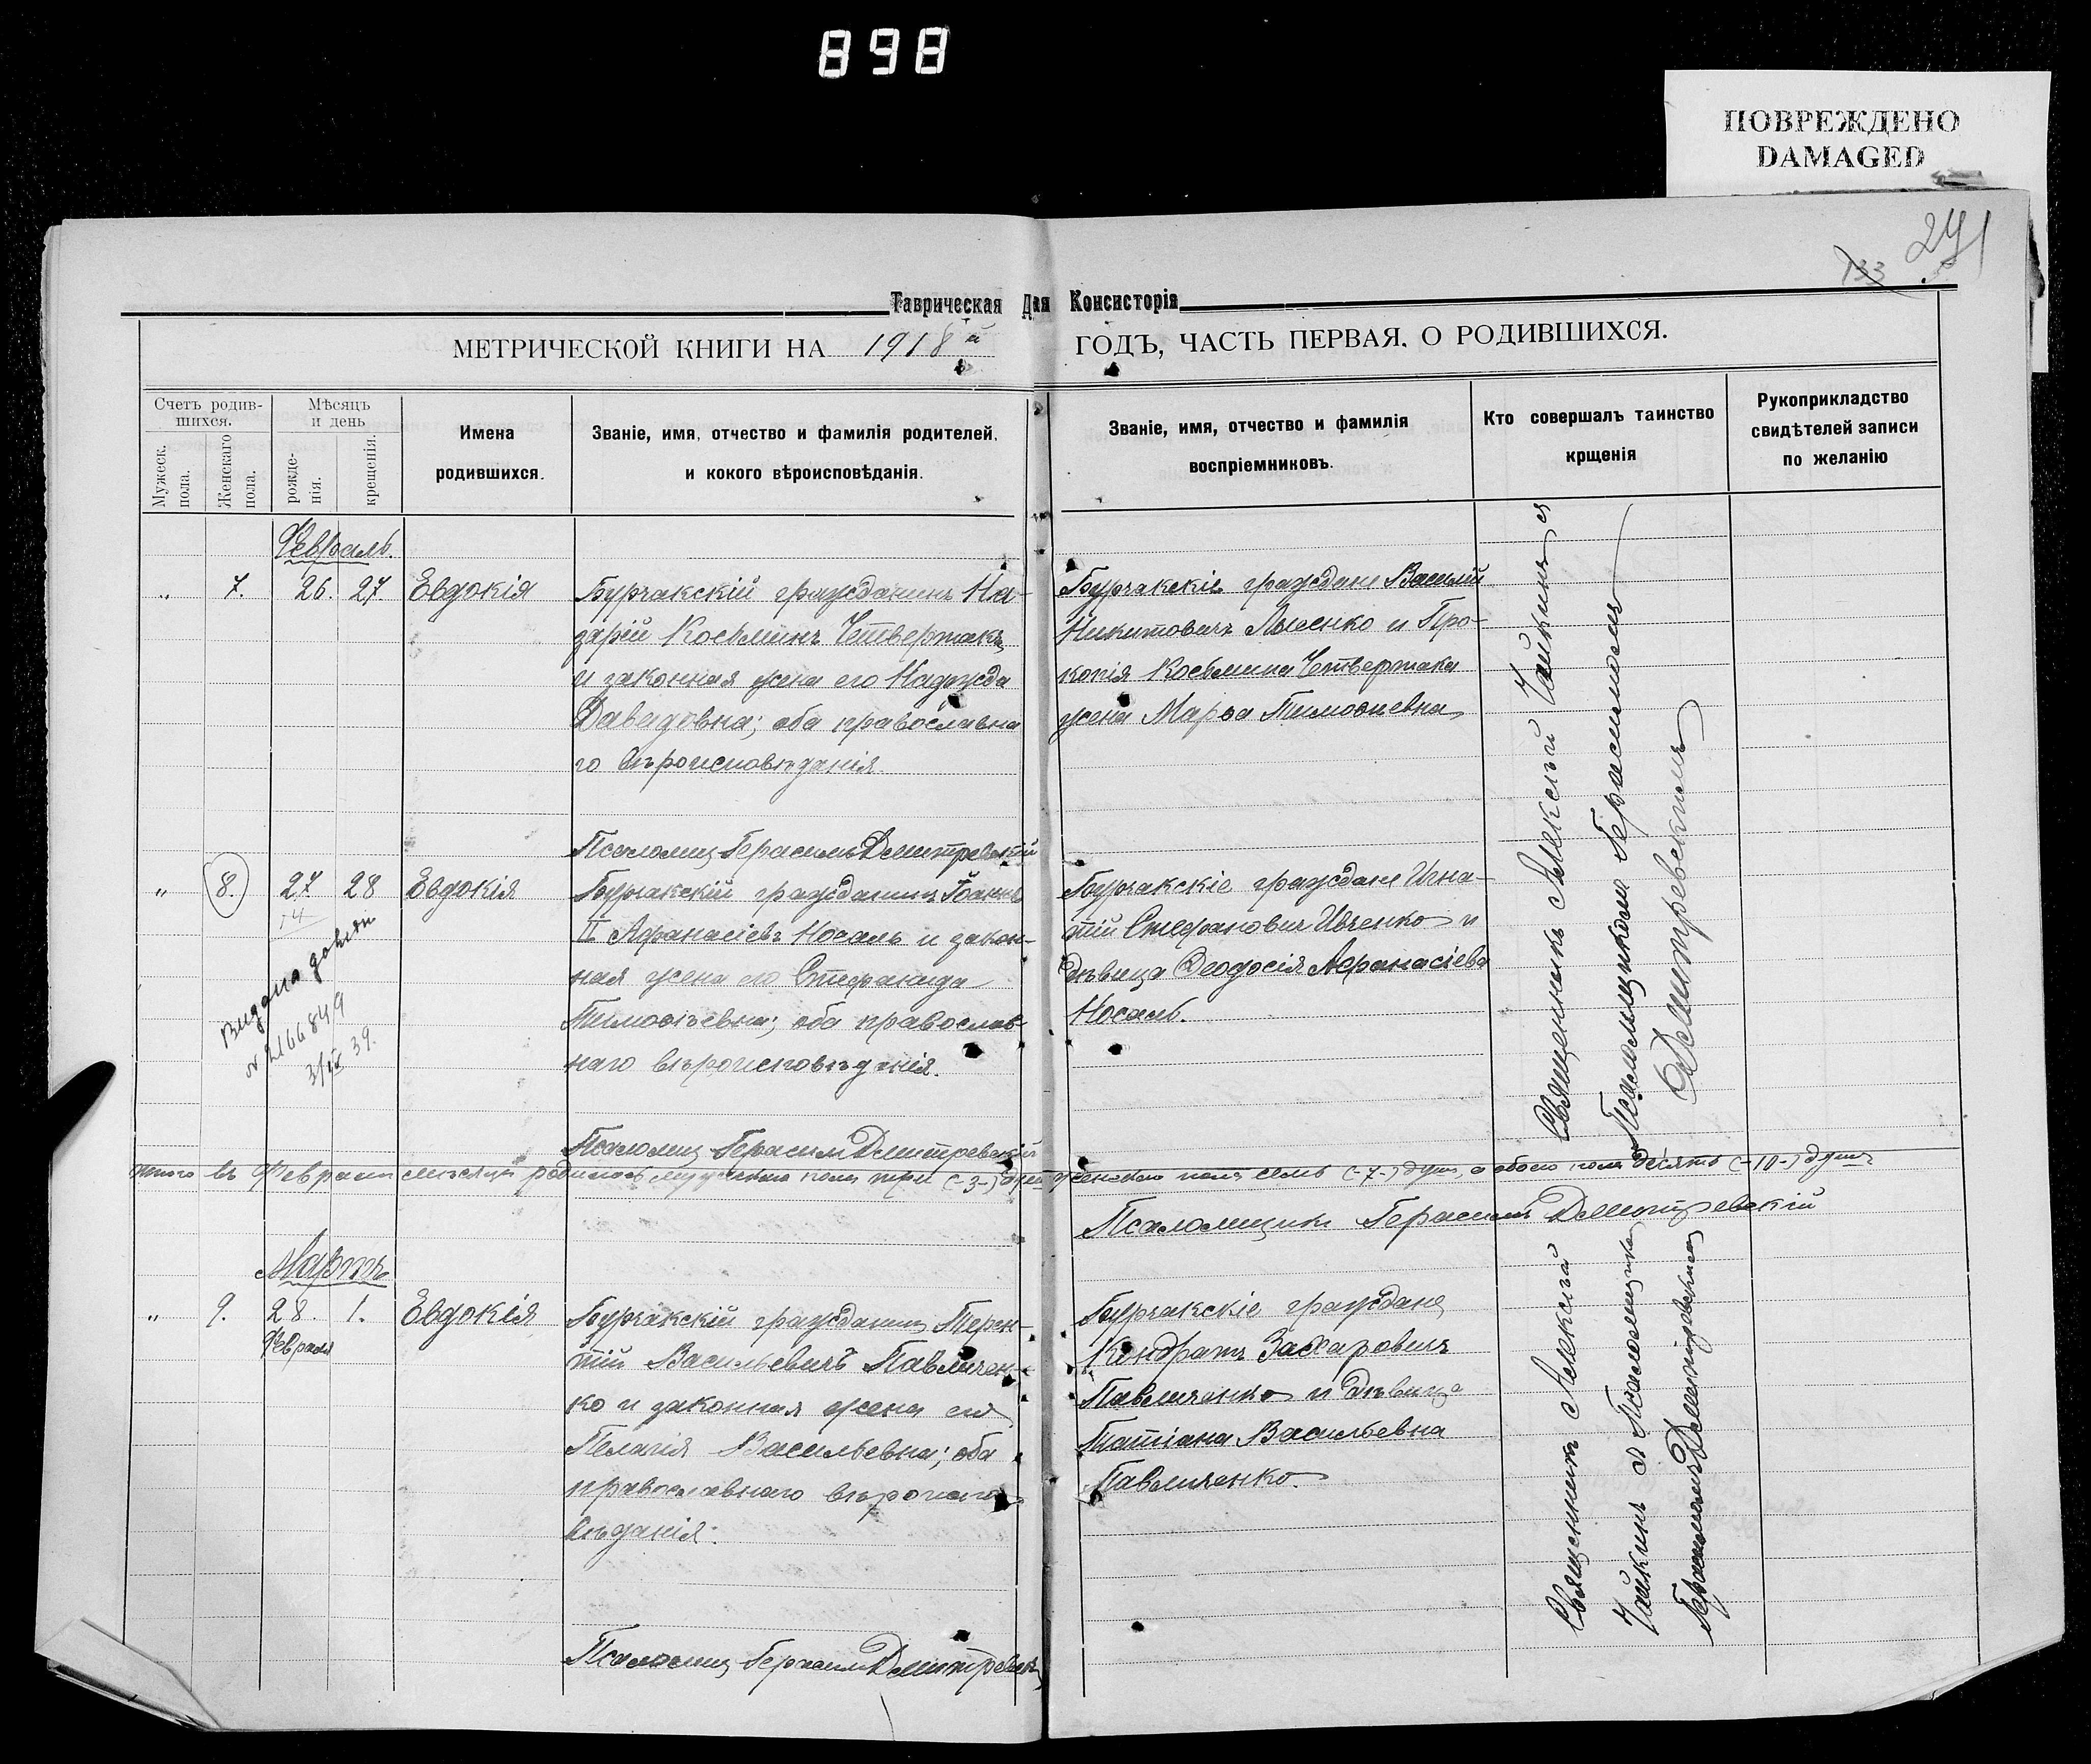 898
ПОВРЕЖДЕНО
DAMAGED
241
133
Таврическая Д‌ая Консисторія
МЕТРИЧЕСКОЙ КНИГИ НА 1918й ГОДЪ, ЧАСТЬ ПЕРВАЯ. О РОДИВШИХСЯ.
Счетъ родив-
шихся.
Мужеск.
пола.
Женскаго
пола.
Мѣсяцъ
и день
рожде-
нія.
крещенія.
Имена
родившихся.
Званіе, имя, отчество и фамилія родителей,
и кокого вѣроисповѣданія.
Званіе, имя, отчество и фамилія
воспріемниковъ.
Кто совершалъ таинство
крщенія
Рукоприкладство
свидѣтелей записи
по желанію
Февраль.
„ 7. 26. 27. Евдокія
Бурчакскій гражданинъ На-
зарій Косьминъ Четвертакъ
и законная жена его Надежда
Давидовна; оба православна
го вѣроисповѣданія
Псаломщ Герасимъ Дмитревскій
Бурчакскіе граждане Василій
Никитовичъ Лысенко и Про-
копія Косьмина Четвертака
жена Марѳа Тимоѳиевна
Священникъ Алексѣй Чайкинъ съ
Псаломщикомъ Герасимомъ
Дмитревскимъ
„ 8. 27 28 Евдокія
14
Видано докум
№ 2166849
3/IV 39.
Бурчакскій гражданинъ Іоаннъ
II Афанасіевъ Носаль и закон-
ная жена его Стефанида
Тимоѳіевна; оба православ-
наго вѣроисповѣданія.
Псаломщ Герасим Дмитревскій
Бурчакскіе граждане Игна-
тій Стефановичъ Ивченко и
дѣвица Ѳеодосія Афанасіева
Носаль.
Итого въ Февралѣ мѣсяцѣ родилось мужескаго пола три (-3-) душ женскаго пола семь (-7-) душ, а обоего пола десять (-10-) душъ
Псаломщикъ Герасимъ Дмитревскій
Мартъ
„ 9. 28. 1. Евдокія
Февраля
Бурчакскій гражданинъ Терен-
тій Васильевичъ Павличен-
ко и законная жена его
Пелагія Васильевна; оба
православнаго вѣроиспо
вѣданія.
Псаломщ Герасим Дмитревскій
Бурчакскіе граждане
Кондратъ Захаровичъ
Павличенко и дѣвица
Татіана Васильевна
Павличенко.
Священникъ Алексѣй
Чайкинъ съ Псаломщикомъ
Герасимомъ Дмитревскимъ